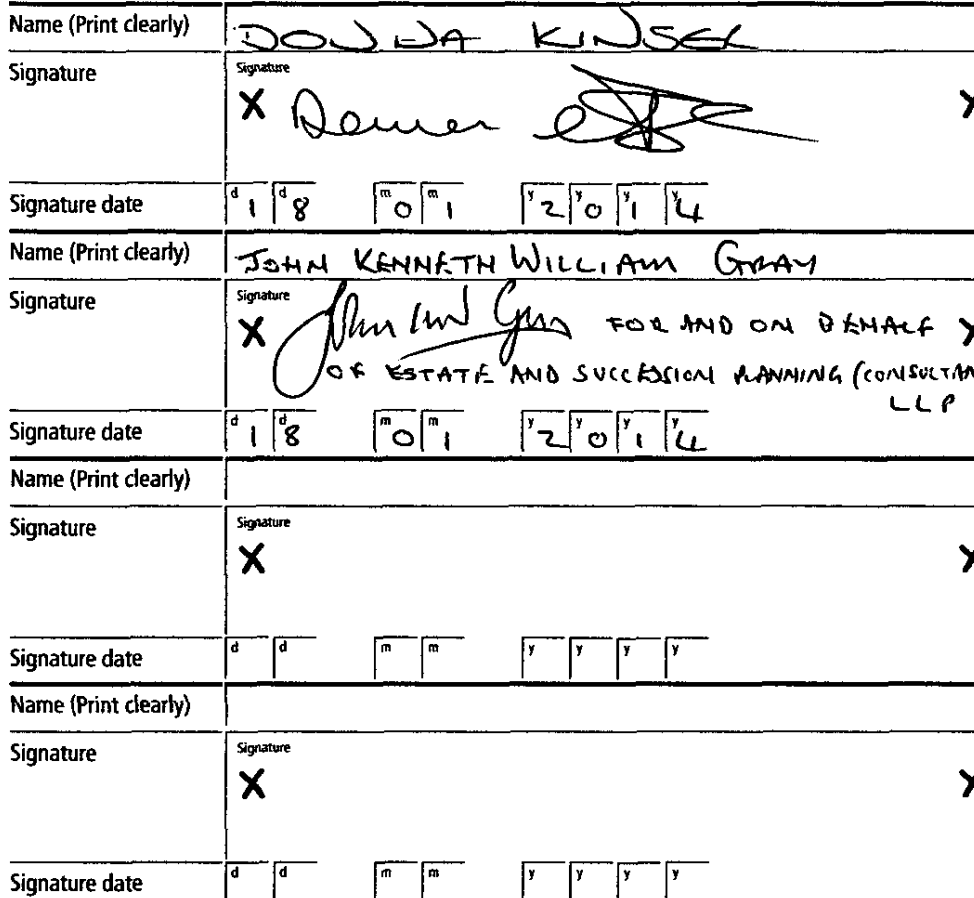 Name (Print clearly) DONNA KINSEL
Signature Signature
X X
Signature date d 1 d 8 m 0 m 1 y 2 y 0 y 1 y 4
Name (Print clearly) JOHN KENNETH WILLIAM GRAY
Signature Signature
X FOR AND ON BEHALF X
OF ESTATE AND SUCCESSION PLANNING (CONSULTAN
LLP
Signature date d 1 d 8 m 0 m 1 y 2 y 0 y 1 y 4
Name (Print clearly)
Signature Signature
X X
Signature date d d m m y y y y
Name (Print clearly)
Signature Signature
X X
Signature date d d m m y y y y